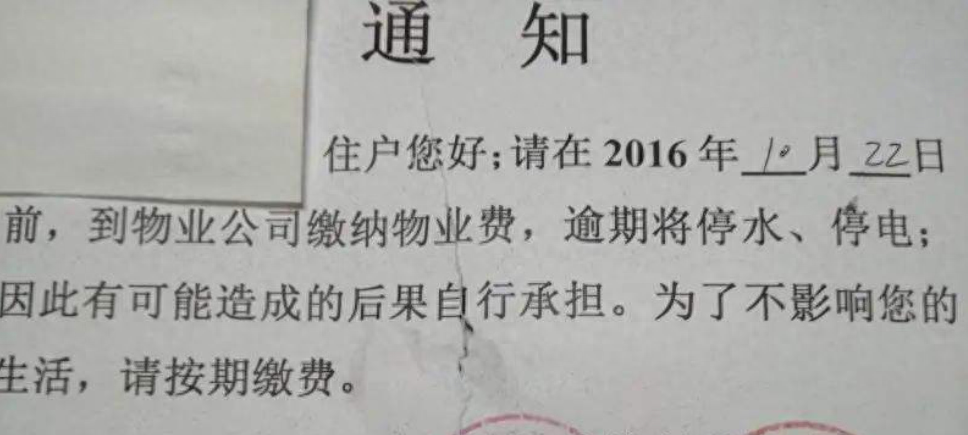 通 知
住户您好;请在 2016 年 10 月 22 日
前，到物业公司缴纳物业费，逾期将停水、停电；
因此有可能造成的后果自行承担。为了不影响您的
生活，请按期缴费。